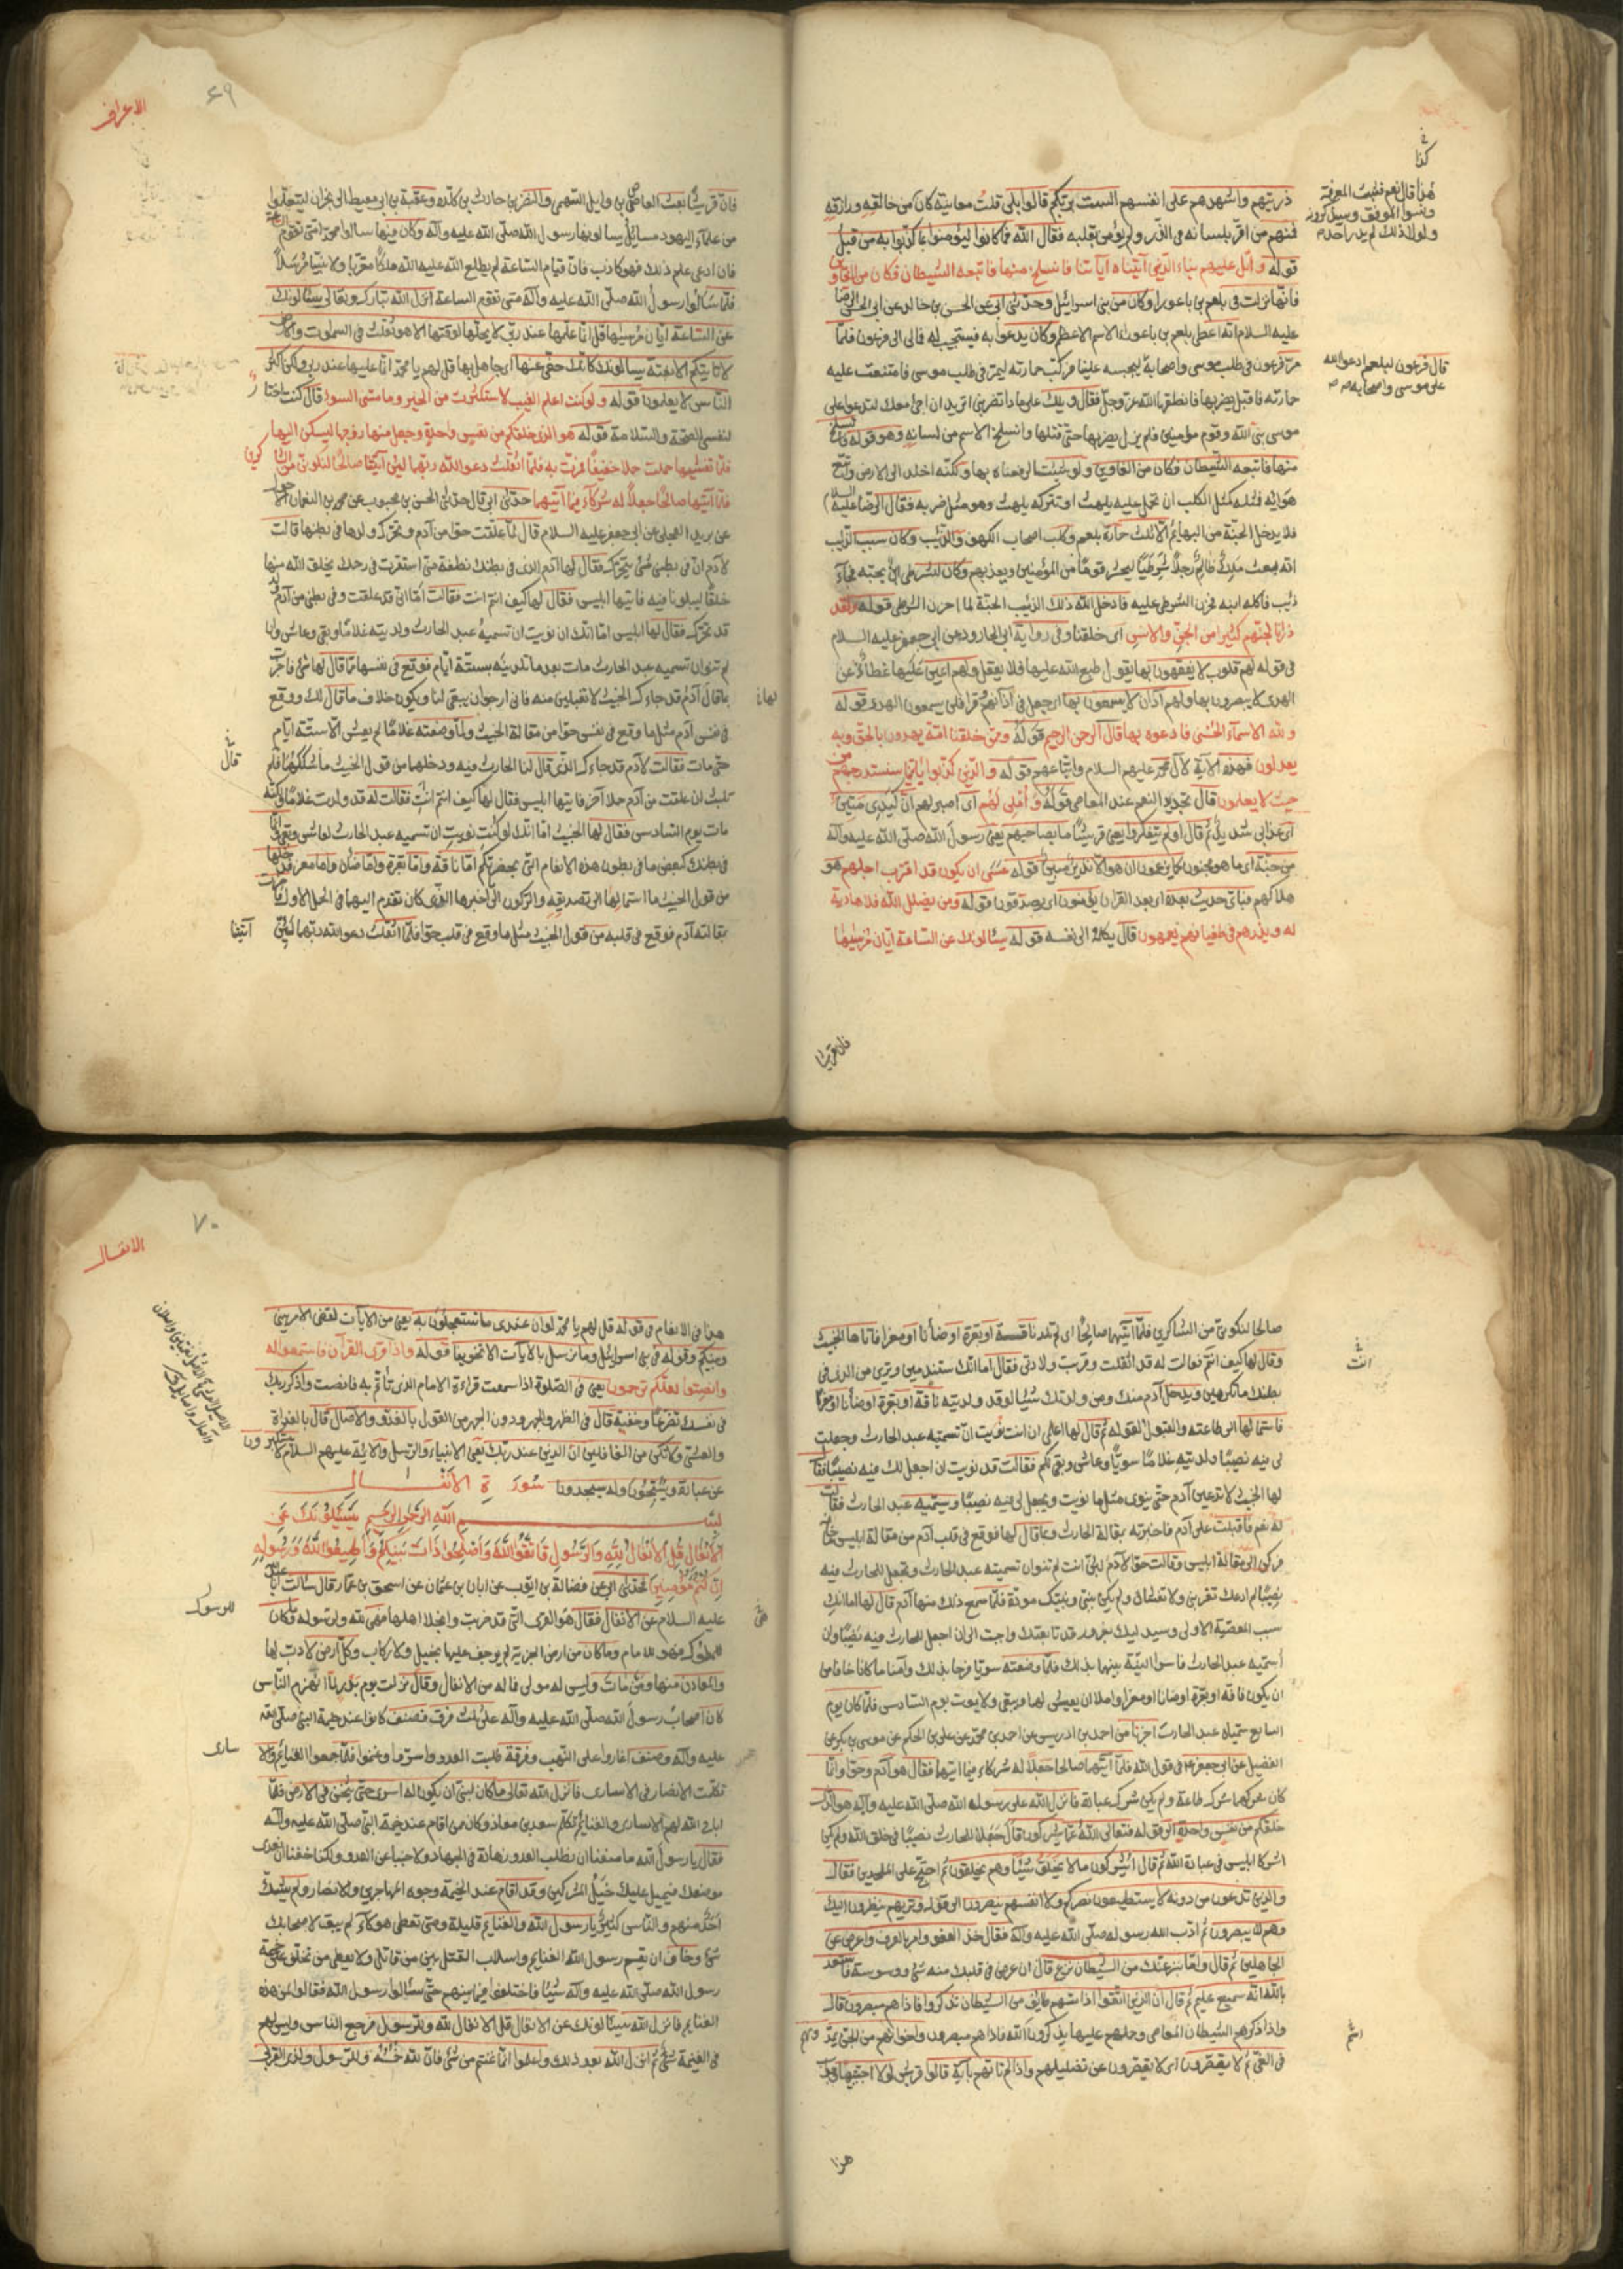 كذا
هذا قال نعم فثبت المعرفة
ونسوا الموقف وسيذكرونه
ولولا ذلك لم يدر احدم
ذريتهم واشهدهم على انفسهم الست بربكم قالوا بلى قلت معاينة كان من خالقه ورازقه
فمنهم من اقر بلسانه في الذر ولم يؤمن بقلبه فقال الله فما كانوا ليؤمنوا بما كذبوا به من قبل
قوله واتل عليهم نباء الذي آتيناه آياتنا فانسلخ منها فاتبعه الشيطان فكان من الغاوين
فانها نزلت في بلعم بن باعورا وكان من بني اسرائيل وحدثني ابي عن الحسن بن خالد عن ابي الحسن الرضا
عليه السلام انه اعطى بلعم بن باعورا الاسم الاعظم وكان يدعوا به فيستجيب له فمال الى فرعون فلما
مر فرعون في طلب موسى واصحابه ليحبسه علينا فركب حمارته ليمر في طلب موسى فامتنعت عليه
قال فرعون لبلعم ادعوا الله
على موسى واصحابه
حمارته فاقبل يضربها فانطقها الله عز وجل فقال ويلك على ما ذا تضربني اتريد ان اجئ معك لتدعوا على
موسى نبي الله وقوم مؤمنين فلم يزل يضربها حتى قتلها وانسلخ الاسم من لسانه وهو قوله فانسلخ
منها فاتبعه الشيطان فكان من الغاوين ولو شئنا لرفعناه بها ولكنه اخلد الى الارض واتبع
هوايه فمثله كمثل الكلب ان تحمل عليه يلهث او تتركه يلهث وهو مثل ضربه فقال الرضا عليه السلام
فلا يدخل الجنة من البهائم الا ثلث حمارة بلعم وكلب اصحاب الكهف والذئب وكان سبب الذئب
انه بعث ملك ظالم رجلا شرطيا ليحشر قوما من المؤمنين ويعذبهم وكان للشرطي ابن يحبه فجاء
ذئب فاكله ابنه فحزن الشرطي عليه فادخل الله ذلك الذئب الجنة لما احزن الشرطي قوله ولقد
ذرانا لجهنم كثيرا من الجن والانس اى خلقنا وفي رواية ابي الجارود عن ابي جعفر عليه السلام
في قوله لهم قلوب لا يفقهون بها يقول طبع الله عليها فلا يعقل ولهم اعين عليها غطاء عن
الهدى لا يبصرون بها ولهم آذان لا يسمعون بها اى جعل في آذانهم وقرا فلن يسمعون الهدى قوله
ولله الاسماء الحسنى فادعوه بها قال الرحمن الرحيم قوله وممن خلقنا امة يهدون بالحق وبه
يعدلون فهذه الآية لآل محمد عليهم السلام واتباعهم قوله والذين كذبوا بآياتنا سنستدرجهم من
حيث لا يعلمون قال تجديد النعم عند المعاصي قوله واملي لهم اى اصبر لهم ان كيدي متين
اى عذابي شديد ثم قال اولم يتفكروا يعني قريشا ما بصاحبهم يعني رسول الله صلى الله عليه وآله
من جنة اى ما هو مجنون كما يزعمون ان هو الا نذير مبين قوله عسى ان يكون قد اقترب اجلهم هو
هلاكهم فباى حديث بعده اى بعد القرآن يؤمنون اى يصدقون قوله ومن يضلل الله فلا هادي
له ويذرهم في طغيانهم يعمهون قال يكله الى نفسه قوله يسئلونك عن الساعة ايان مرسيها
فان قريشا
الاعراف
۶۹
فان قريشا بعث العاص بن وايل السهمي والنضر بن حارث بن كلده وعقبة بن ابي معيط الى نجران ليتعلموا
من علماء اليهود مسائل يسالونها رسول الله صلى الله عليه وآله وكان فيها سالوا محمدا متى تقوم الساعة
فان ادعى علم ذلك فهو كاذب فان قيام الساعة لم يطلع الله عليه ملكا مقربا ولا نبيا مرسلا
فلما سالوا رسول الله صلى الله عليه وآله متى تقوم الساعة انزل الله تبارك وتعالى يسئلونك
عن الساعة ايان مرسيها قل انما علمها عند ربي لا يجليها لوقتها الا هو ثقلت في السموات والارض
لا تاتيكم الا بغتة يسالونك كانك حفى عنها اى جاهل بها قل لهم يا محمد انما علمها عند ربي ولكن اكثر
الناس لا يعلمون قوله ولو كنت اعلم الغيب لاستكثرت من الخير وما مسني السوء قال كنت اختار
لنفسي الصحة والسلامة قوله هو الذي خلقكم من نفس واحدة وجعل منها زوجها ليسكن اليها
فلما تغشيها حملت حملا خفيفا فمرت به فلما اثقلت دعوا الله ربهما لئن آتيتنا صالحا لنكونن من الشاكرين
فلما آتيهما صالحا جعلا له شركاء فيما آتيهما حدثني ابي قال حدثني الحسن بن محبوب عن محمد بن النعمان الاحول
عن بريد العجلي عن ابي جعفر عليه السلام قال لما علقت حوا من آدم وتحرك ولدها في بطنها قالت
لآدم ان في بطني شئ يتحرك فقال لها آدم الذي في بطنك نطفة مني استقرت في رحمك يخلق الله منها
خلقا ليبلونا فيه فاتيها ابليس فقال لها كيف انتم انت فقالت اما انى قد علقت وفي بطني من آدم ولد
قد تحرك فقال لها ابليس اما انك ان نويت ان تسميه عبد الحارث ولدتيه غلاما وبقى وعاش وان
لم تنوان تسميه عبد الحارث مات بعد ما تلدينه بستة ايام فوقع في نفسها مما قال لها شئ فاخبرت
بما قال آدم قد جاءك الخبيث لا تقبلين منه فانى ارجوان يبقى لنا ويكون خلاف ما قال لك ووقع
لها
في نفس آدم مثل ما وقع في نفس حوا من مقالة الخبيث ولما وضعته غلاما لم يعش الا ستة ايام
قال
حتى مات فقالت لآدم قد جاءك الذي قال لنا الحارث فيه ودخلهما من قول الخبيث ما شككهما فلم
تلبث ان علقت من آدم حملا آخر فاتيها ابليس فقال لها كيف انتم انت فقالت له قد ولدت غلاما ولكنه
مات يوم السادس فقال لها الخبيث اما انك لو كنت نويت ان تسميه عبد الحارث لعاش وبقى وانما
في بطنك كبعض ما في بطون هذه الانعام التي بحضرتكم اما ناقة واما بقرة واما ضان واما معز فدخلها
من قول الخبيث ما استمالها الى تصديقه والركون الى اخبرها الذي كان تقدم اليها في الحمل الاول
بمقالته آدم فوقع في قلبه من قول الخبيث مثل ما وقع في قلب حوا فلما اثقلت دعوا الله ربهما لئن
آتيتنا
صالحا لنكونن من الشاكرين فلما آتيهما صالحا اى لم تلد ناقة او بقرة او ضأنا او معزا فاتاها الخبيث
وقال لها كيف انتم فقالت له قد اثقلت وقربت ولادتي فقال اما انك ستندمين وترين من الذي في
انت
بطنك ما تكرهين ويدخل آدم منك ومن ولدك شئ لو قد ولدتيه ناقة او بقرة او ضأنا او معزا
فاستمالها الى طاعته والقبول لقوله ثم قال لها اعلمى ان انت نويت ان تسميه عبد الحارث وجعلت
لي فيه نصيبا ولدتيه غلاما سويا وعاش وبقى لكم فقالت قد نويت ان اجعل لك فيه نصيبا فقال
لها الخبيث لا تدعين آدم حتى ينوى مثل ما نويت ويجعل لي فيه نصيبا ويسميه عبد الحارث فقالت
له نعم فاقبلت على آدم فاخبرته بمقالة الحارث وبما قال لها فوقع في قلب آدم من مقالة ابليس
فركن الى مقالة ابليس وقالت حوا لآدم لئن انت لم تنوان تسميه عبد الحارث وتجعل للحارث فيه
نصيبا لم ادعك تقربني ولا تغشاني ولم يكن بيني وبينك مودة فلما سمع ذلك منها آدم قال لها اما انك
سبب المعصية الاولى وسيدليك بغرور قد تابعتك واجبت الى ان اجعل للحارث فيه نصيبا وان
اسميه عبد الحارث فاسرا النية بينهما بذلك فلما وضعته سويا فرحا بذلك وآمنا ما كانا خافا من
ان يكون ناقة او بقرة او ضانا او معزا واملا ان يعيش لهما ويبقى ولا يموت يوم السادس فلما كان يوم
السابع سمياه عبد الحارث اخبرنا من احمد بن ادريس عن احمد بن محمد عن علي بن الحكم عن موسى بن بكر عن
الفضيل عن ابي جعفر ع في قول الله فلما آتيهما صالحا جعلا له شركاء فيما آتيهما فقال هو آدم وحوا وانما
كان شركهما شرك طاعة ولم يكن شرك عبادة فانزل الله على رسوله الله صلى الله عليه وآله هو الذي
خلقكم من نفس واحدة الى قوله فتعالى الله عما يشركون قال جعلا للحارث نصيبا في خلق الله ولم يكن
اشركا ابليس في عبادة الله ثم قال ايشركون ما لا يخلق شيئا وهم يخلقون ثم احتج على الملحدين فقال
والذين تدعون من دونه لا يستطيعون نصركم ولا انفسهم ينصرون الى قوله وتريهم ينظرون اليك
وهم لا يبصرون ثم ادب الله رسوله صلى الله عليه وآله فقال خذ العفو وامر بالعرف واعرض عن
الجاهلين ثم قال واما ينزغنك من الشيطان نزغ قال ان عرض في قلبك منه شئ ووسوسة فاستعذ
بالله انه سميع عليم ثم قال ان الذين اتقوا اذا مسهم طائف من الشيطان تذكروا فاذا هم مبصرون قال
واذا ذكرهم الشيطان المعاصي وحملهم عليها يذكرون الله فاذا هم مبصرون واخوانهم من الجن يمدونهم
في الغى ثم لا يقصرون اى لا يقصرون عن تضليلهم واذا لم تاتهم بآية قالوا قريش لولا اجتبيتها
هذا
الانفال
۷۰
هذا في الانعام في قوله قل لهم يا محمد لو ان عندي ما تستعجلون به يعني من الآيات لقضى الامر بيني
وبينكم وقوله في بني اسرائيل وما نرسل بالآيات الا تخويفا قوله واذا قرئ القرآن فاستمعوا له
وانصتوا لعلكم ترحمون يعني في الصلوة اذا سمعت قراءة الامام الذي تاتم به فانصت واذكر ربك
في نفسك تضرعا وخفية قال في الظهر والعصر ودون الجهر من القول بالغدو والآصال قال بالغداة
والعشى ولا تكن من الغافلين ان الذين عند ربك يعني الانبياء والرسل والائمة عليهم السلام لا يستكبرون
عن عبادته ويسبحونه وله يسجدون سورة الانفال
بسم الله الرحمن الرحيم يسئلونك عن
الانفال قل الانفال لله والرسول فاتقوا الله واصلحوا ذات بينكم واطيعوا الله ورسوله
ان كنتم مؤمنين فحدثني ابي عن فضالة بن ايوب عن ابان بن عثمان عن اسحق بن عمار قال سالت ابا عبد الله
عليه السلام عن الانفال فقال هو القرى التي قد خربت وانجلا اهلها فهى لله ولرسوله وما كان
للملوك فهو للامام وما كان من ارض الجزية لم يوجف عليها بخيل ولا ركاب وكل ارض لا رب لها
والمعادن منها ومن مات وليس له مولى فماله من الانفال وقال نزلت يوم بدر لما انهزم الناس
كان اصحاب رسول الله صلى الله عليه وآله على ثلث فرق فصنف كانوا عند خيمة النبي صلى الله
عليه وآله وصنف اغاروا على النهب وفرقة طلبت العدو واسروا وغنموا فلما جمعوا الغنائم والاسارى
تكلمت الانصار في الاسارى فانزل الله تعالى ما كان لنبي ان يكون له اسرى حتى يثخن في الارض فلما
اباح الله لهم الاسارى والغنائم تكلم سعد بن معاذ وكان من اقام عند خيمة النبي صلى الله عليه وآله
فقال يا رسول الله ما منعنا ان نطلب العدو زهادة في الجهاد ولا جبنا عن العدو ولكنا خفنا ان نعرى
موضعك فيميل عليك خيل المشركين وقد اقام عند الخيمة وجوه المهاجرين والانصار ولم يشك
احد منهم والناس كثير يا رسول الله والغنايم قليلة ومتى تعطى هؤلاء لم يبق لاصحابك
شئ وخاف ان يقسم رسول الله الغنايم واسلاب القتلى بين من قاتل ولا يعطى من تخلف على خيمة
رسول الله صلى الله عليه وآله شيئا فاختلفوا فيما بينهم حتى سئالوا رسول الله فقالوا لمن هذه
الغنايم فانزل الله يسئالونك عن الانفال قل الانفال لله وللرسول فرجع الناس وليس لهم
في الغنيمة شئ ثم انزل الله بعد ذلك واعلموا انما غنمتم من شئ فان لله خمسه وللرسول ولذي القربى